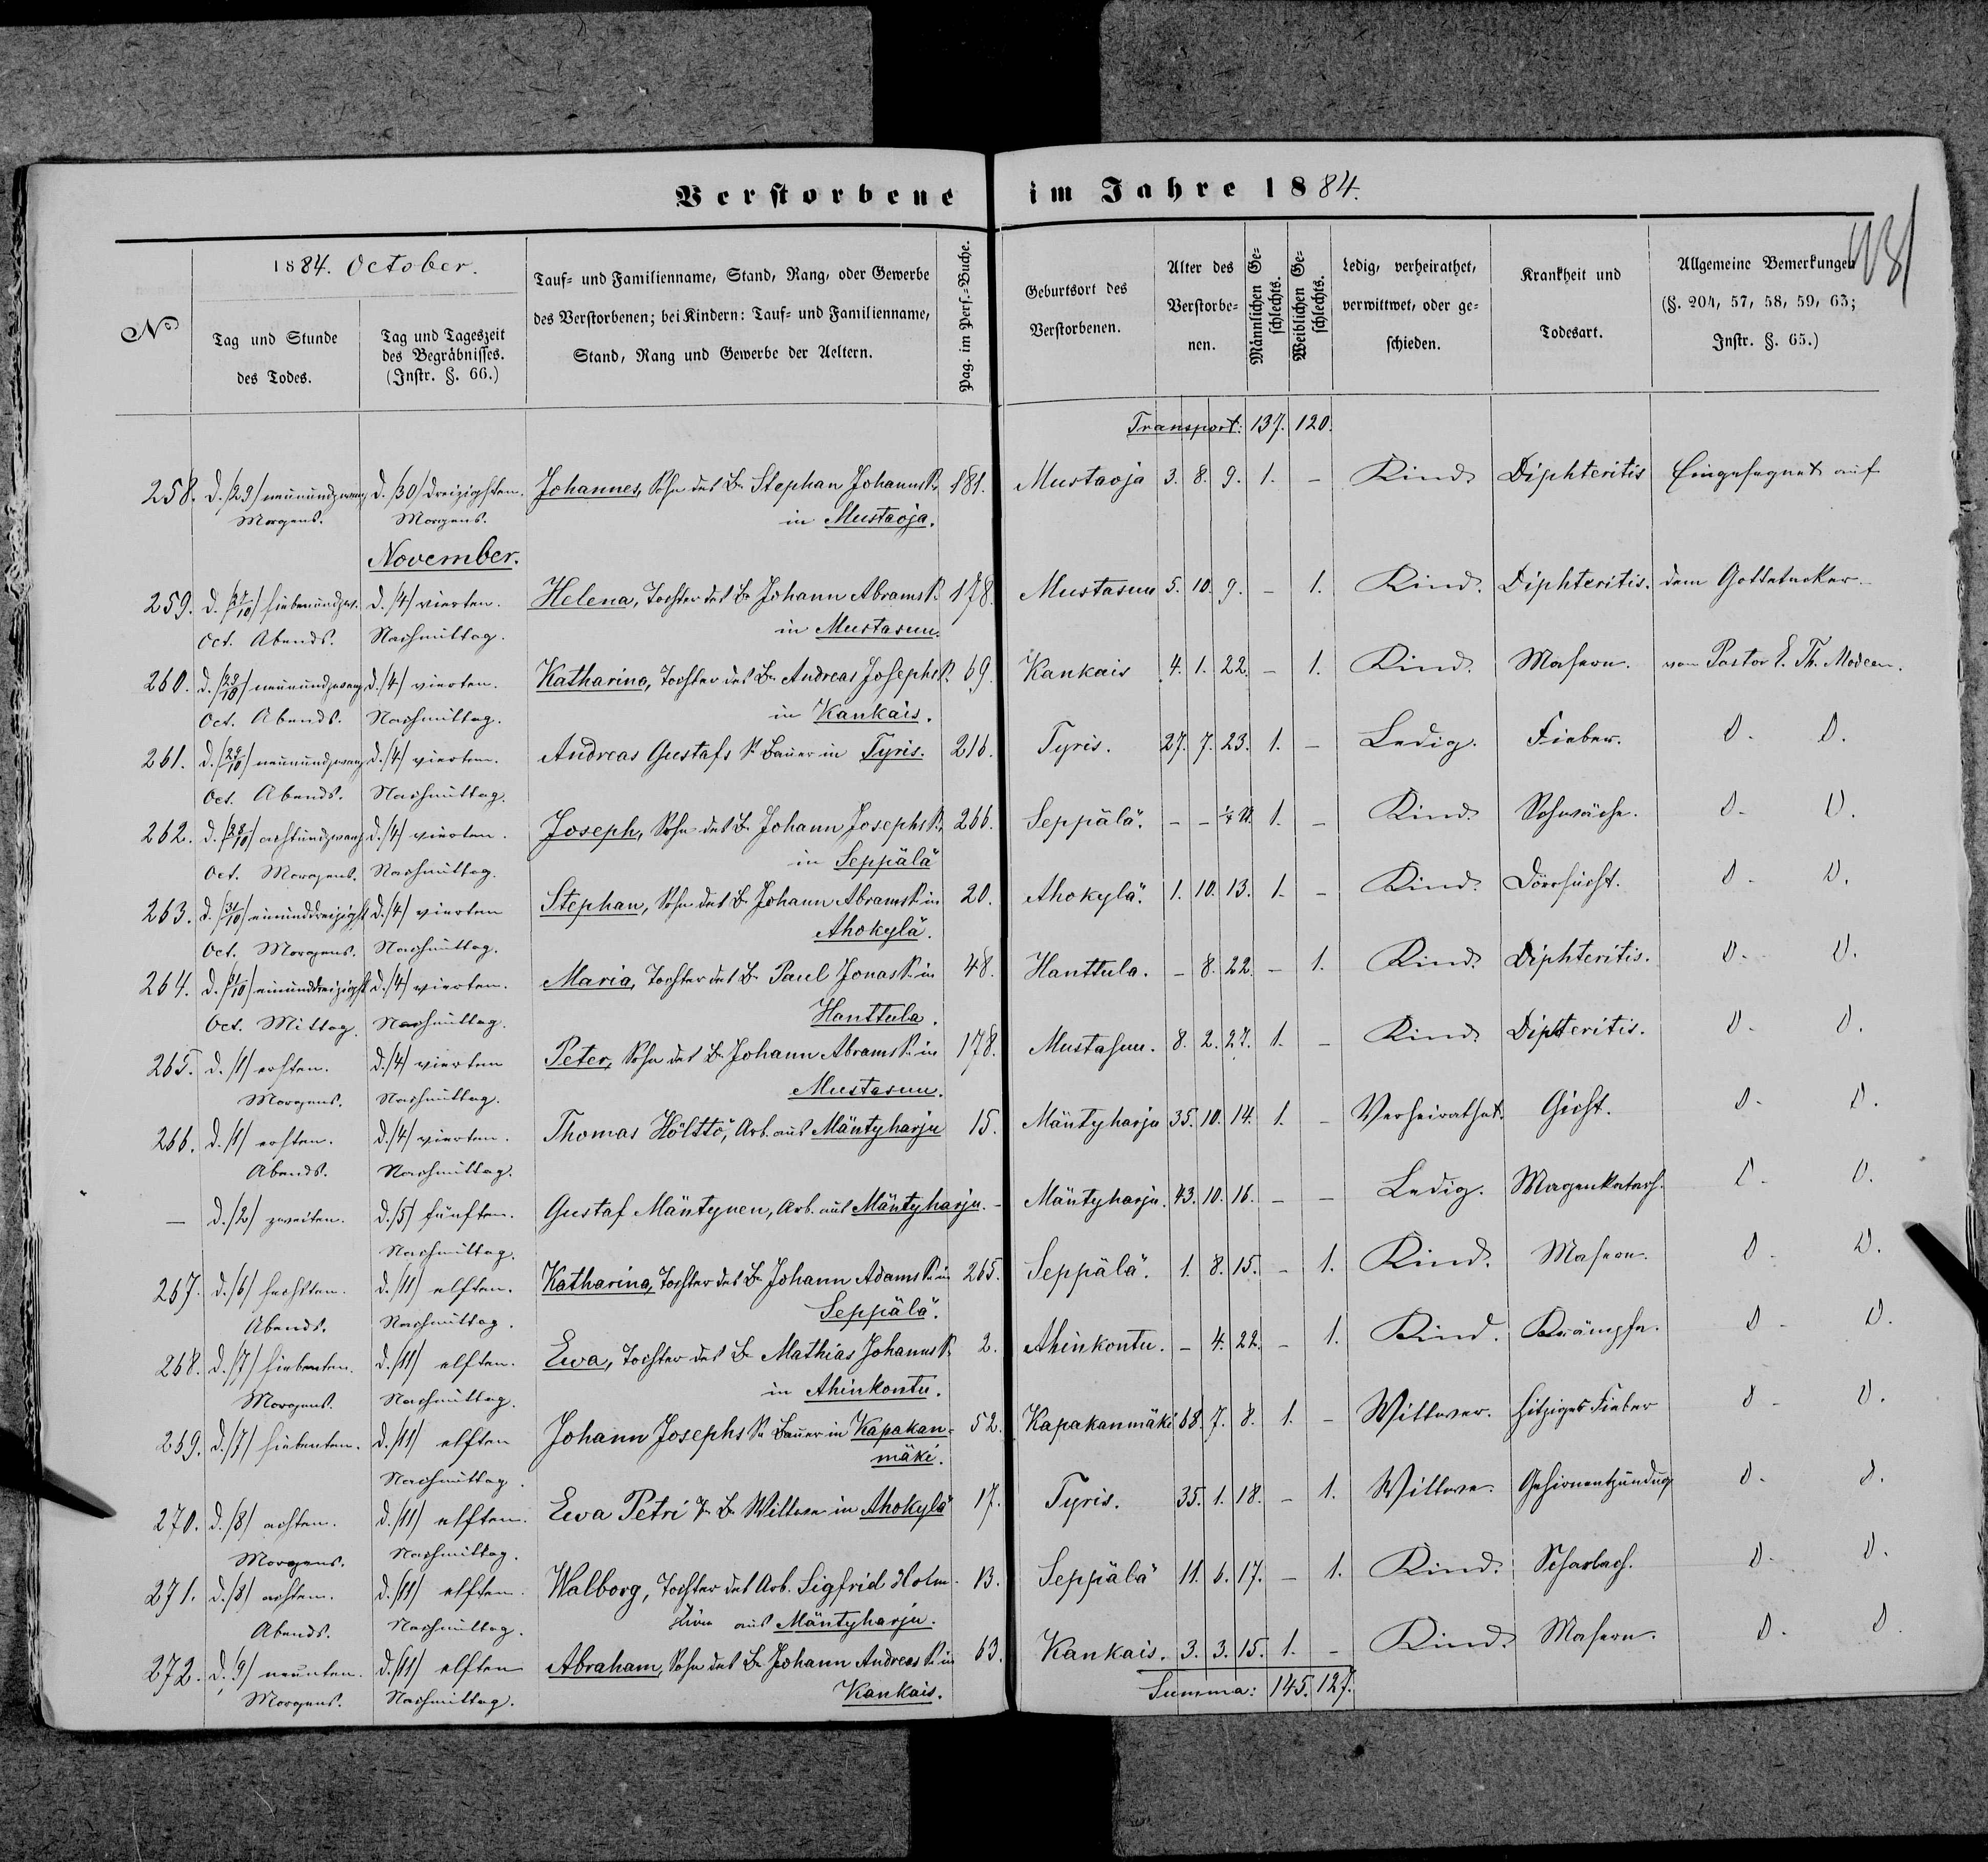 Verstorbene im Jahre 1884.
1884. October.
No
Tag und Stunde des Todes.
Tag und Tageszeit des Begräbnisses. (Instr. §. 66.)
Tauf- und Familienname, Stand, Rang, oder Gewerbe
des Verstorbenen; bei Kindern: Tauf- und Familienname,
Stand, Rang und Gewerbe der Aeltern.
Pag. im Pers.-Buche.
Geburtsort des Verstorbenen.
Alter des Verstorbenen.
Männlichen Geschlechts.
Weiblichen Geschlechts.
Ledig, verheirathet, verwittwet, oder geschieden.
Krankheit und Todesart.
Allgemeine Bemerkungen
(§. 204, 57, 58, 59, 63;
Instr. §. 65.)
Transport: 137. 120.
258. d. /29/ neunundzwanz. d. /30/ dreizigsten. Johannes, Sohn des B. Stephan Johanns S. 181. Mustaoja 3. 8. 9. 1. - Kind Diphteritis Eingesegnet auf
Morgens. Morgens. in Mustaoja.
November.
259. d. /27/10/ siebenundzw. d. /4/ vierten. Helena, Tochter des B. Johann Abrams S. 178. Mustasuu 5. 10. 9. - 1. Kind. Diphteritis. dem Gottesacker
Oct. Abends. Nachmittag. in Mustasuu.
260. d. /29/10/ neunundzwanz d. /4/ vierten. Katharina, Tochter des B. Andreas Josephs S. 69. Kankais 4. 1. 22. - 1. Kind. Masern. vom Pastor E. Th. Modeen.
Oct. Abends. Nachmittag. in Kankais.
261. d. /29/10/ neunundzwanz d. /4/ vierten. Andreas Gustafs S. Bauer in Tyris. 216. Tyris. 27. 7. 23. 1. - Ledig. Fieber. D. D.
Oct. Abends. Nachmittag.
262. d. /28/10/ achtundzwanz d. /4/ vierten. Joseph, Sohn des B. Johann Josephs S. 266. Seppälä. - - ¼ U. 1. - Kind Schwäche. D. D.
Oct. Morgens. Nachmittag. in Seppälä
263. d. /31/10/ einunddreizigst d. /4/ vierten Stephan, Sohn des B. Johann Abrams S. in 20. Ahokylä. 1. 10. 13. 1. - Kind. Dörrsucht. D. D.
Oct. Morgens. Nachmittag. Ahokylä.
264. d. /31/10/ einunddreizigst d. /4/ vierten. Maria, Tochter des B. Paul Jonas S. in 48. Hanttula. - 8. 22. - 1. Kind. Diphteritis. D. D.
Oct. Mittag. Nachmittag. Hanttula.
265. d. /1/ ersten. d. /4/ vierten Peter, Sohn des B. Johann Abrams S. in 178. Mustasuu. 8. 2. 27. 1. - Kind Dipteritis. D. D.
Morgens. Nachmittag. Mustasuu.
266. d. /1/ ersten. d. /4/ vierten. Thomas Hölttö, Arb. aus Mäntyharju 15. Mäntyharju 35. 10. 14. 1. - Verheirathet. Gicht. D. D.
Abends. Nachmittag.
- d. /2/ zweiten. d. /5/ fünften. Gustaf Mäntynen, Arb. aus Mäntyharju. - Mäntyharju. 43. 10. 16. - - Ledig. Magenkatarh. D. D.
Nachmittag.
267. d. /6/ sechsten. d. /11/ elften. Katharina, Tochter des B. Johann Adams S. in 265. Seppälä. 1. 8. 15. - 1. Kind. Masern. D. D.
Abends. Nachmittag. Seppälä.
268. d. /7/ siebenten. d. /11/ elften. Ewa, Tochter des B. Mathias Johanns S. 2. Ahinkontu. - 4. 22. - 1. Kind. Krämpfe. D. D.
Morgens. Nachmittag. in Ahinkontu.
269. d. /7/ siebenten. d. /11/ elften Johann Josephs S. Bauer in Kapakan- 52. Kapakanmäki 68. 7. 8. 1. - Wittwer. hitziges Fieber D. D.
Nachmittag. mäki.
270. d. /8/ achten. d. /11/ elften. Ewa Petri T. B. Wittwe in Ahokylä 17. Tyris. 35. 1. 18. - 1. Wittwe. Gehirnentzündug D. D.
Morgens. Nachmittag.
271. d. /8/ achten. d. /11/ elften. Walborg, Tochter des Arb. Sigfrid Holm- 13. Seppälä 11. 6. 17. - 1. Kind. Scharlach. D. D.
Abends. Nachmittag. aus Mäntyharju.
272. d. /9/ neunten. d. /11/ elften Abraham, Sohn des B. Johann Andreas S. in 63. Kankais. 3. 3. 15. 1. - Kind. Masern. D. D.
Morgens. Nachmittag. Kankais.
Summa: 145. 127.